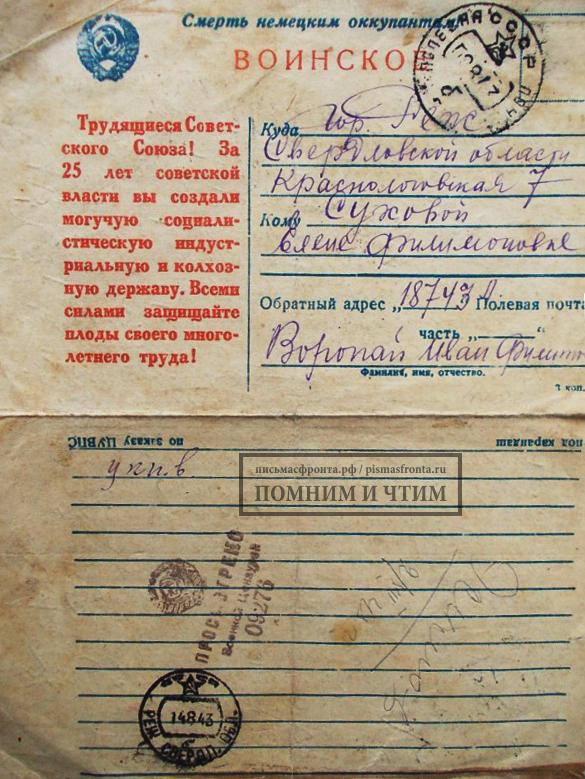 Смерть немецким оккупантам
ВОИНСКОЕ
ПОЛЕВАЯ ПОЧТ СССР
Трудящиеся Совет-
ского Союза! За
25 лет советской
власти вы создали
могучую социали-
стическую индуст-
риальную и колхоз-
ную державу. Всеми
силами защищайте
плоды своего много-
летнего труда!
Куда гор. Реж
Свердловской области
Краснологовская 7
Кому Суховой
Елене Филимоновне
Обратный адрес „18743 А. Полевая почта
часть „ “
Воропай Иван
Фамилия, имя, отчество.
2 коп.
по заказу ЦУВПС
под карандаш
письмасфронта.рф / pismasfronta.ru
ПОМНИМ И ЧТИМ
ПРОСМОТРЕНО
Военной Цензурой
09276
14843
РЕЖ СВЕРДЛ. ОБЛ.